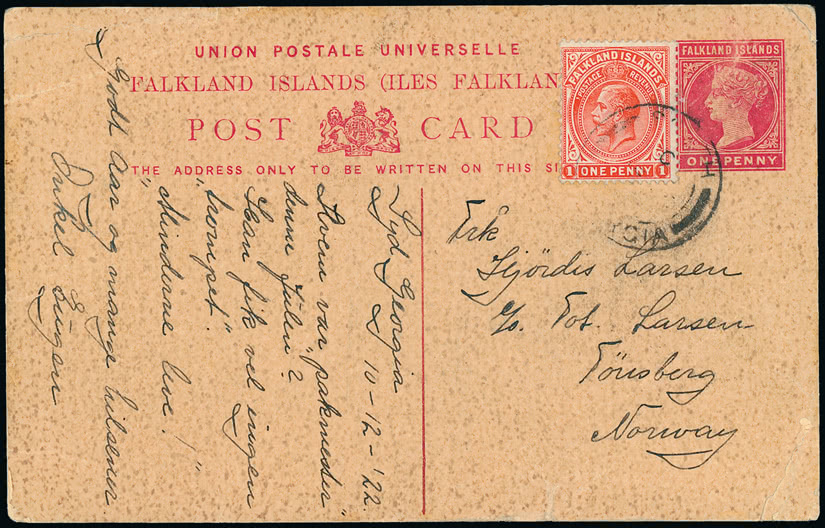 UNION POSTALE UNIVERSELLE
FALKLAND ISLANDS (ILES FALKLAN
POST CARD
THE ADDRESS ONLY TO BE WRITTEN ON THIS SI
FALKLAND ISLANDS
POSTAGE REVENUE
1 ONE PENNY 1
FALKLAND ISLANDS
ONE PENNY
Frk
Hjördis Larsen
c/o. Fot. Larsen
Tönsberg
Norway
Syd Georgia
10-12-'22.
Hvem var "pakmester"
denne Julen?
Han fik vel ingen
"trompet".
"Minderne leve!"
Godt Aar og mange hilsener
Onkel Eugen